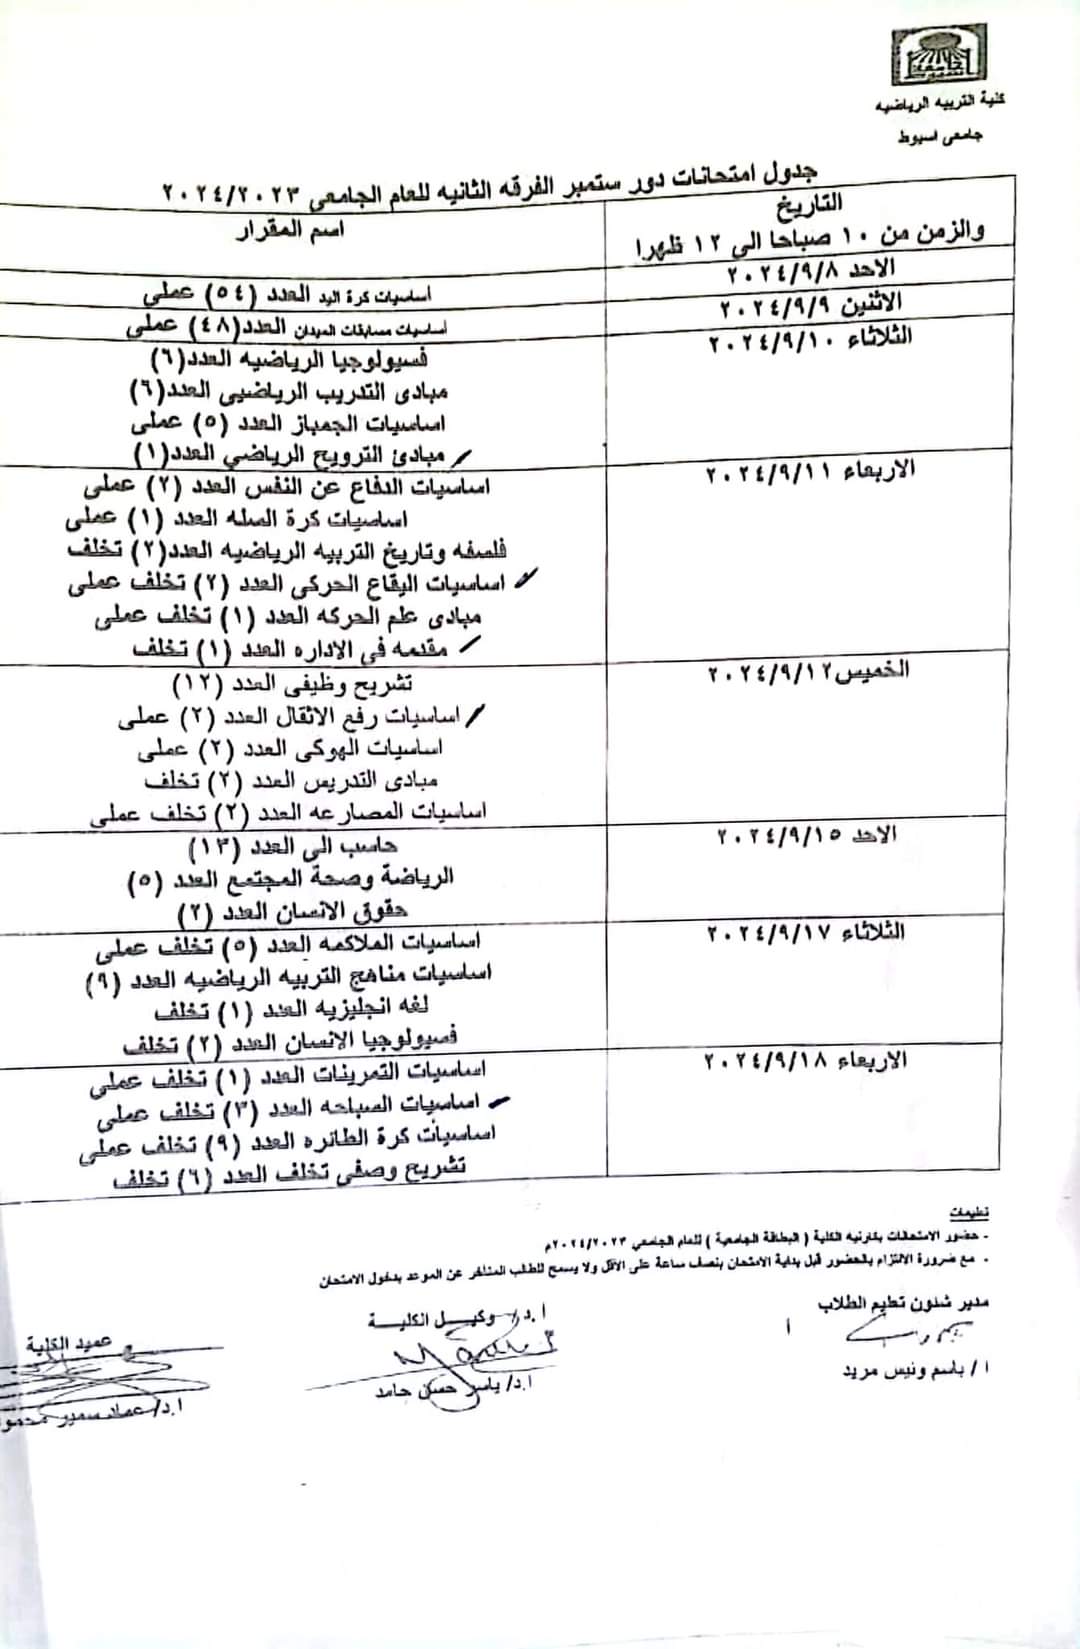 كلية التربيه الرياضيه
جامعى اسيوط
جدول امتحانات دور ستمبر الفرقه الثانيه للعام الجامعى ٢٠٢٤/٢٠٢٣
التاريخ
والزمن من ١٠ صباحا الى ١٢ ظهرا
اسم المقرار
الاحد ٢٠٢٤/٩/٨
اساسيات كرة اليد العدد (٥٤) عملي
الاثنين ٢٠٢٤/٩/٩
اساسيات مسابقات الميدان العدد(٤٨) عملى
الثلاثاء ٢٠٢٤/٩/١٠
فسيولوجيا الرياضيه العدد(٦)
مبادى التدريب الرياضيى العدد(٦)
اساسيات الجمباز العدد (٥) عملى
مبادئ الترويح الرياضي العدد(١)
الاربعاء ٢٠٢٤/٩/١١
اساسيات الدفاع عن النفس العدد (٢) عملى
اساسيات كرة السله العدد (١) عملى
فلسفه وتاريخ التربيه الرياضيه العدد(٢) تخلف
اساسيات اليقاع الحركى العدد (٢) تخلف عملى
مبادى علم الحركه العدد (١) تخلف عملى
مقدمه فى الاداره العدد (١) تخلف
الخميس٢٠٢٤/٩/١٢
تشريح وظيفى العدد (١٢)
اساسيات رفع الاثقال العدد (٢) عملى
اساسيات الهوكى العدد (٢) عملى
مبادى التدريس العدد (٢) تخلف
اساسيات المصارعه العدد (٢) تخلف عملى
الاحد ٢٠٢٤/٩/١٥
حاسب الى العدد (١٣)
الرياضة وصحة المجتمع العدد (٥)
حقوق الانسان العدد (٢)
الثلاثاء ٢٠٢٤/٩/١٧
اساسيات الملاكمه العدد (٥) تخلف عملى
اساسيات مناهج التربيه الرياضيه العدد (٩)
لغه انجليزيه العدد (١) تخلف
فسيولوجيا الإنسان العدد (٢) تخلف
الاربعاء ٢٠٢٤/٩/١٨
اساسيات التمرينات العدد (١) تخلف عملى
اساسيات السباحه العدد (٣) تخلف عملى
اساسيات كرة الطائره العدد (٩) تخلف عملى
تشريح وصفى تخلف العدد (٦) تخلف
تعليمات
- حضور الامتحانات بكارنيه الكلية ( البطاقة الجامعية ) للعام الجامعي ٢٠٢٤/٢٠٢٣م
- مع ضرورة الالتزام بالحضور قبل بداية الامتحان بنصف ساعة على الأقل ولا يسمح للطلب المتأخر عن الموعد بدخول الامتحان
مدير شئون تعليم الطلاب
ا / باسم ونيس مريد
ا.د/ وكيـــل الكليـــة
ا.د/ ياسر حسن حامد
عميد الكلية
ا.د/ عماد سمير محمو